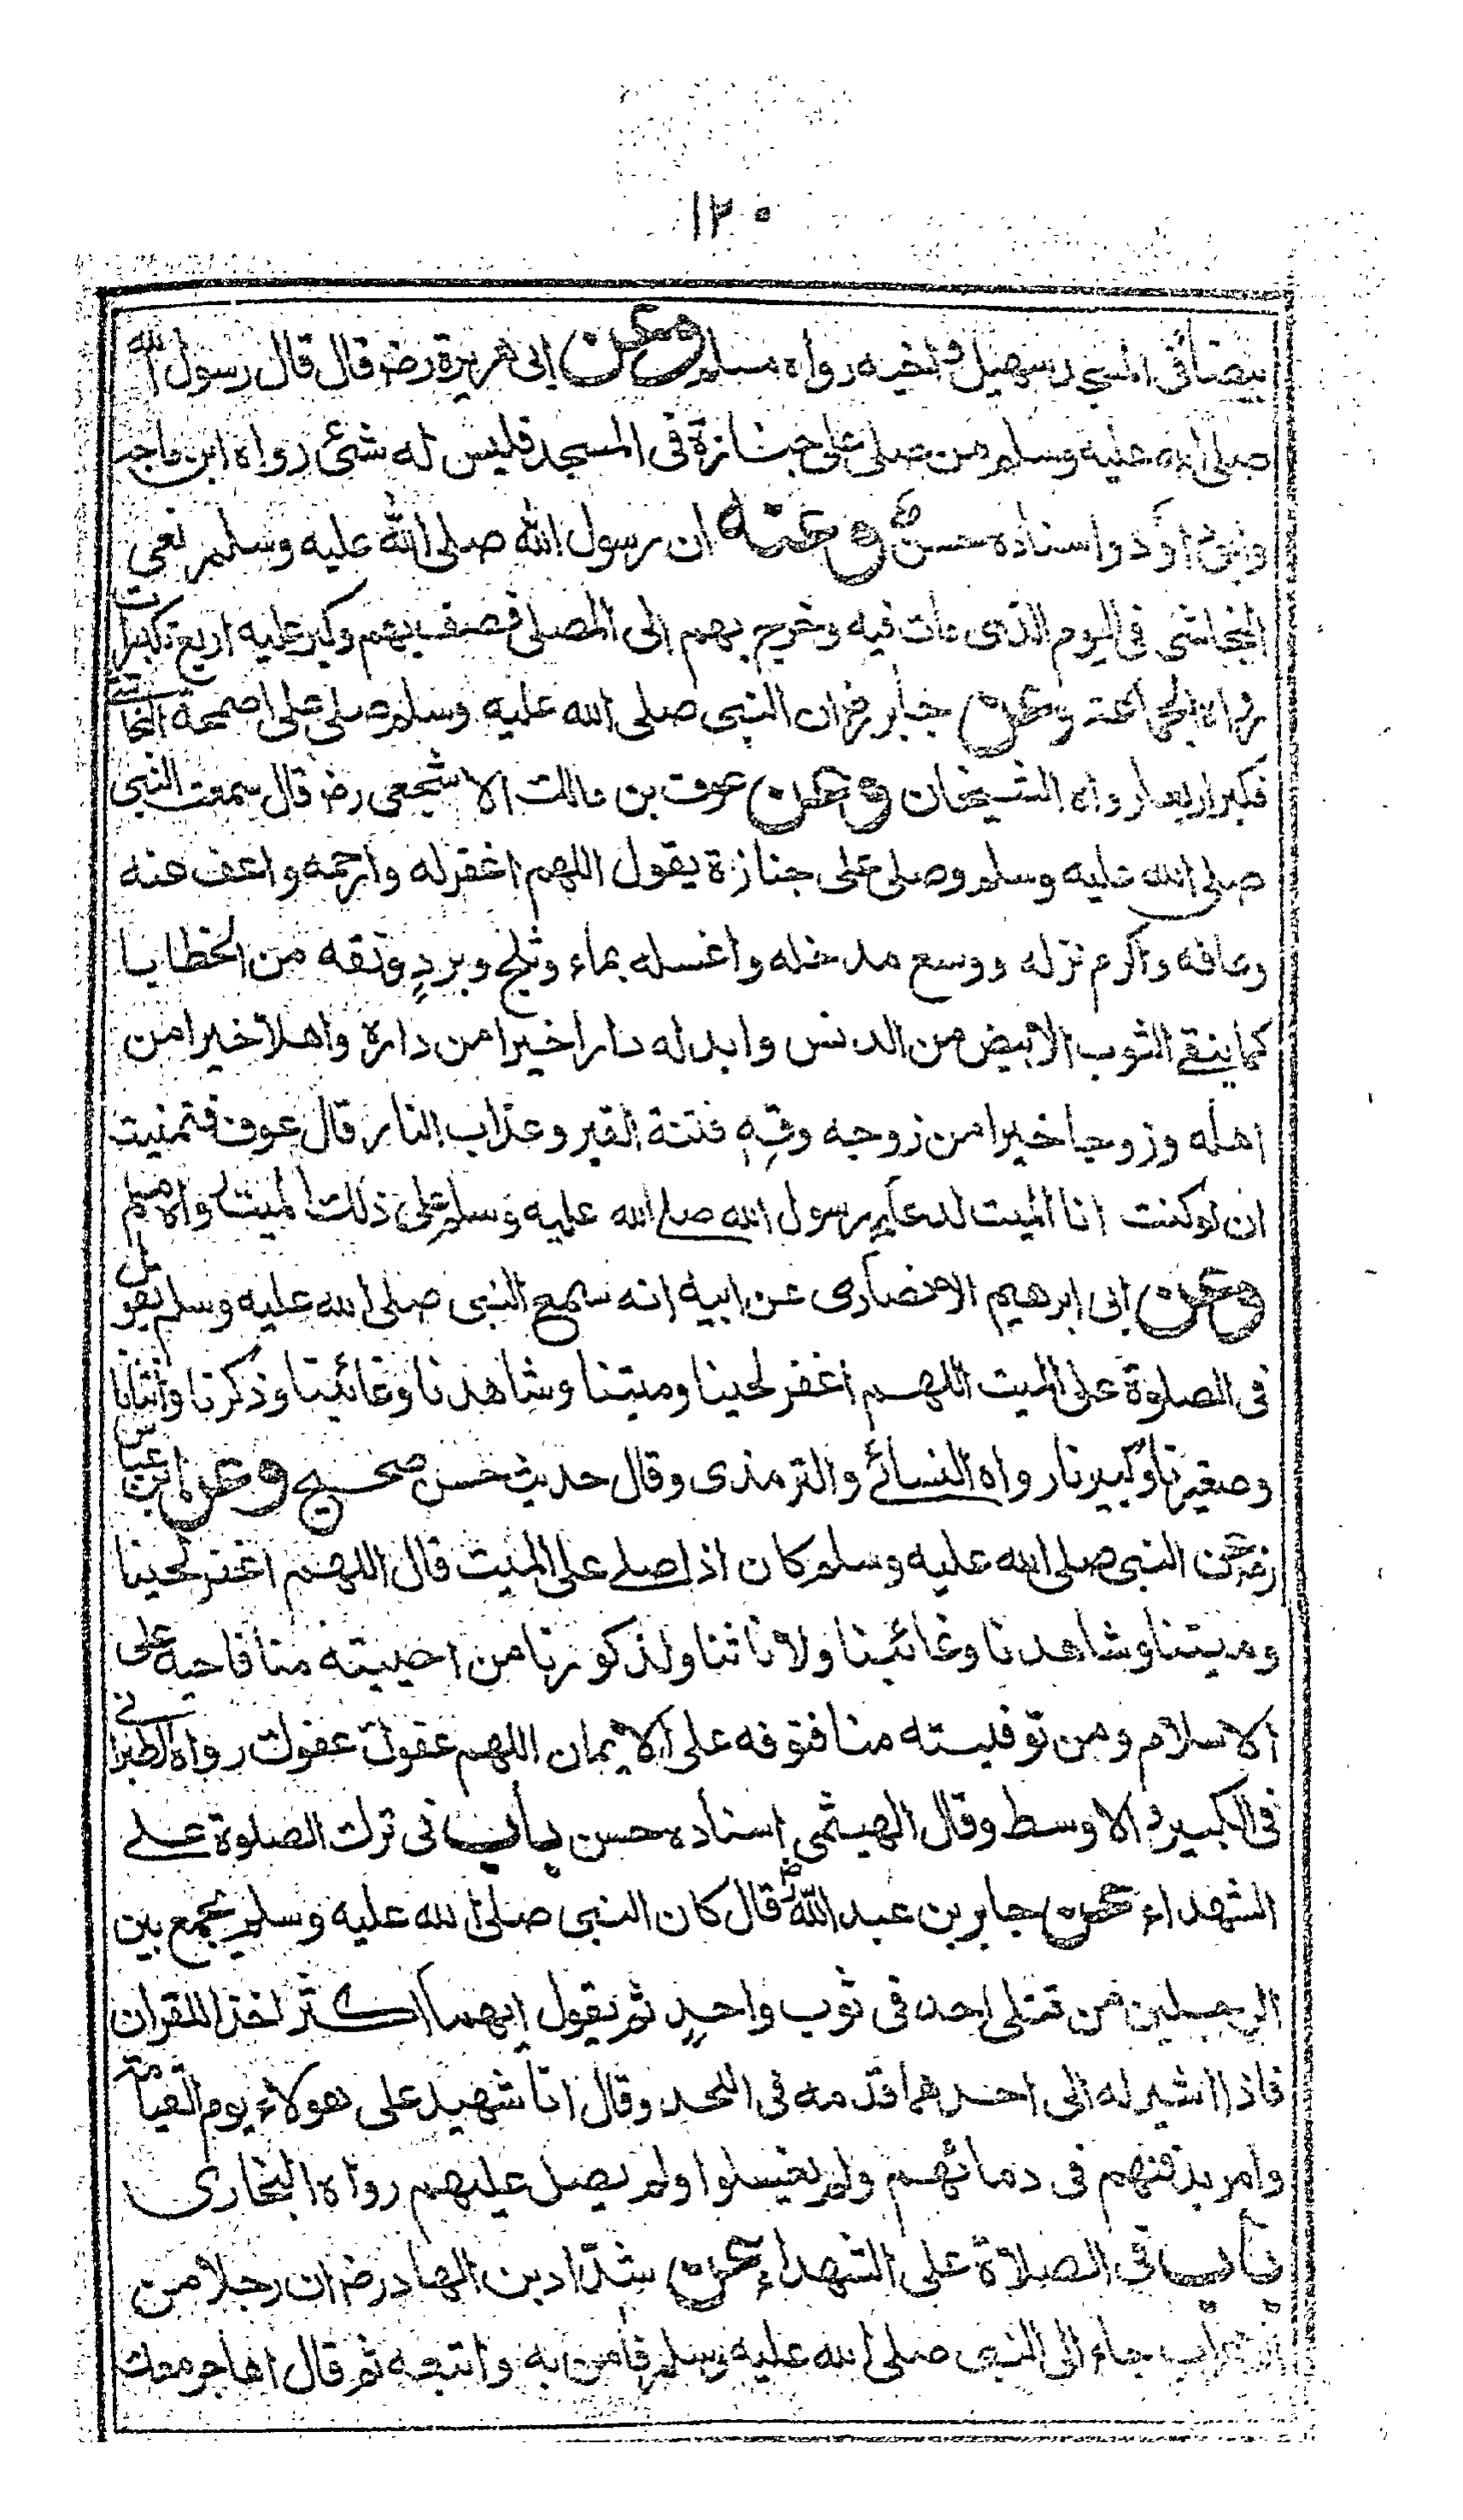 ١٢٠
بيضاء فى المسجد سهيل واخيه رواه مسلم وعن ابى هريرة رضـ قال قال رسول الله
صلى الله عليه وسلم من صلى على جنازة فى المسجد فليس له شئ رواه ابن ماجه
وابوداؤد واسناده حسن وعنه ان رسول الله صلى الله عليه وسلم نعى
النجاشى فى اليوم الذى مات فيه وخرج بهم الى المصلى فصف بهم وكبر عليه اربع تكبيرات
رواه الجماعة وعن جابر رضـ ان النبى صلى الله عليه وسلم صلى على اصحمة النجاشے
فكبر اربعا رواه الشيخان وعن عوف بن مالك الاشجعى رضـ قال سمعت النبى
صلى الله عليه وسلم وصلى على جنازة يقول اللهم اغفرله وارحمه واعف عنه
وعافه واكرم نزله ووسع مدخله واغسله بماء وثلج وبردٍ ونقه من الخطايا
كما ينقے الثوب الابيض من الدنس وابدله دارا خيرا من داره واهلا خيرا من
اهله وزوجا خيرا من زوجه وقِهِ فتنة القبر وعذاب النار قال عوف فتمنيت
ان لو كنت انا الميت لدعاء رسول الله صلے الله عليه وسلم على ذلك الميت رواه مسلم
وعن ابى ابرهيم الانصارى عن ابيه انه سمع النبى صلى الله عليه وسلم يقول
فى الصلوة على الميت اللهم اغفر لحينا وميتنا وشاهدنا وغائبنا وذكرنا وانثانا
وصغيرنا وكبيرنا رواه النسائے والترمذى وقال حديث حسن صحيح وعن ابن عباس
رضـ عن النبى صلى الله عليه وسلم كان اذا صلے على الميت قال اللهم اغفر لحينا
وميتنا وشاهدنا وغائبنا ولاناثنا ولذكورنا من احييته منا فاحيه على
الاسلام ومن توفيته منا فتوفه على الايمان اللهم عفوك عفوك رواه الطبرانے
فى الكبير والاوسط وقال الهيثمى اسناده حسن باب فى ترك الصلوة علے
الشهداء عن جابر بن عبد الله رضـ قال كان النبى صلى الله عليه وسلم يجمع بين
الرجلين من قتلى احد فى ثوب واحدٍ ثم يقول ايهما اكثر اخذا للقران
فاذا اشير له الى احدهما قدمه فى اللحد وقال انا شهيد على هولاء يوم القيامة
وامر بدفنهم فى دمائهم ولم يغسلوا ولم يصل عليهم رواه البخارى
باب فى الصلاة على الشهداء عن شداد بن الهاد رضـ ان رجلا من
الاعراب جاء الى النبى صلى الله عليه وسلم فأمن به واتبعه ثم قال اهاجر معك